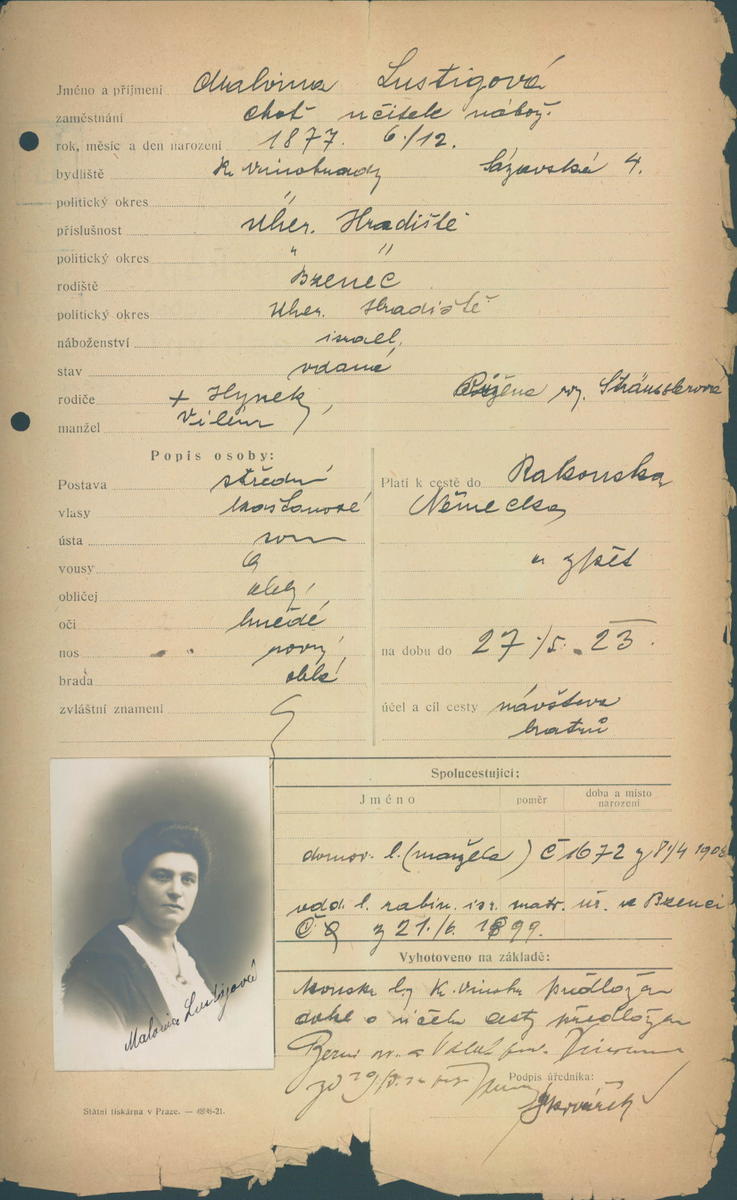 Jméno a příjmení Malvina Lustigová
zaměstnání choť učitele nábož.
rok, měsíc a den narození 1877. 6./12.
bydliště Kr. Vinohrady Sázavská 4.
politický okres "
příslušnost Uher. Hradiště
politický okres " "
rodiště Bzenec
politický okres Uher. Hradiště
náboženství israel.
stav vdaná
rodiče + Hynek, Růžena roz. Sträusslerová
manžel Vilém
Popis osoby:
Postava střední
vlasy kaštanové
ústa
vousy
obličej obl.
oči hnědé
nos rovný
brada oblá
zvláštní znamení
Platí k cestě do Rakouska
Německa
a zpět
na dobu do 27./5. 23.
účel a cíl cesty návštěva
bratrů
Spolucestující:
Jméno poměr doba a místo narození
domov. l. (manžela) Č 1672 z 8/4
odd. l. rabín. isr. matr. úř. v Bzenci
Č 8 z 21./6. 1899.
Vyhotoveno na základě:
Kr. Vinohr. předložen
o účelu cesty předložen
Podpis úředníka:
Malvina Lustigová
Státní tiskárna v Praze. —